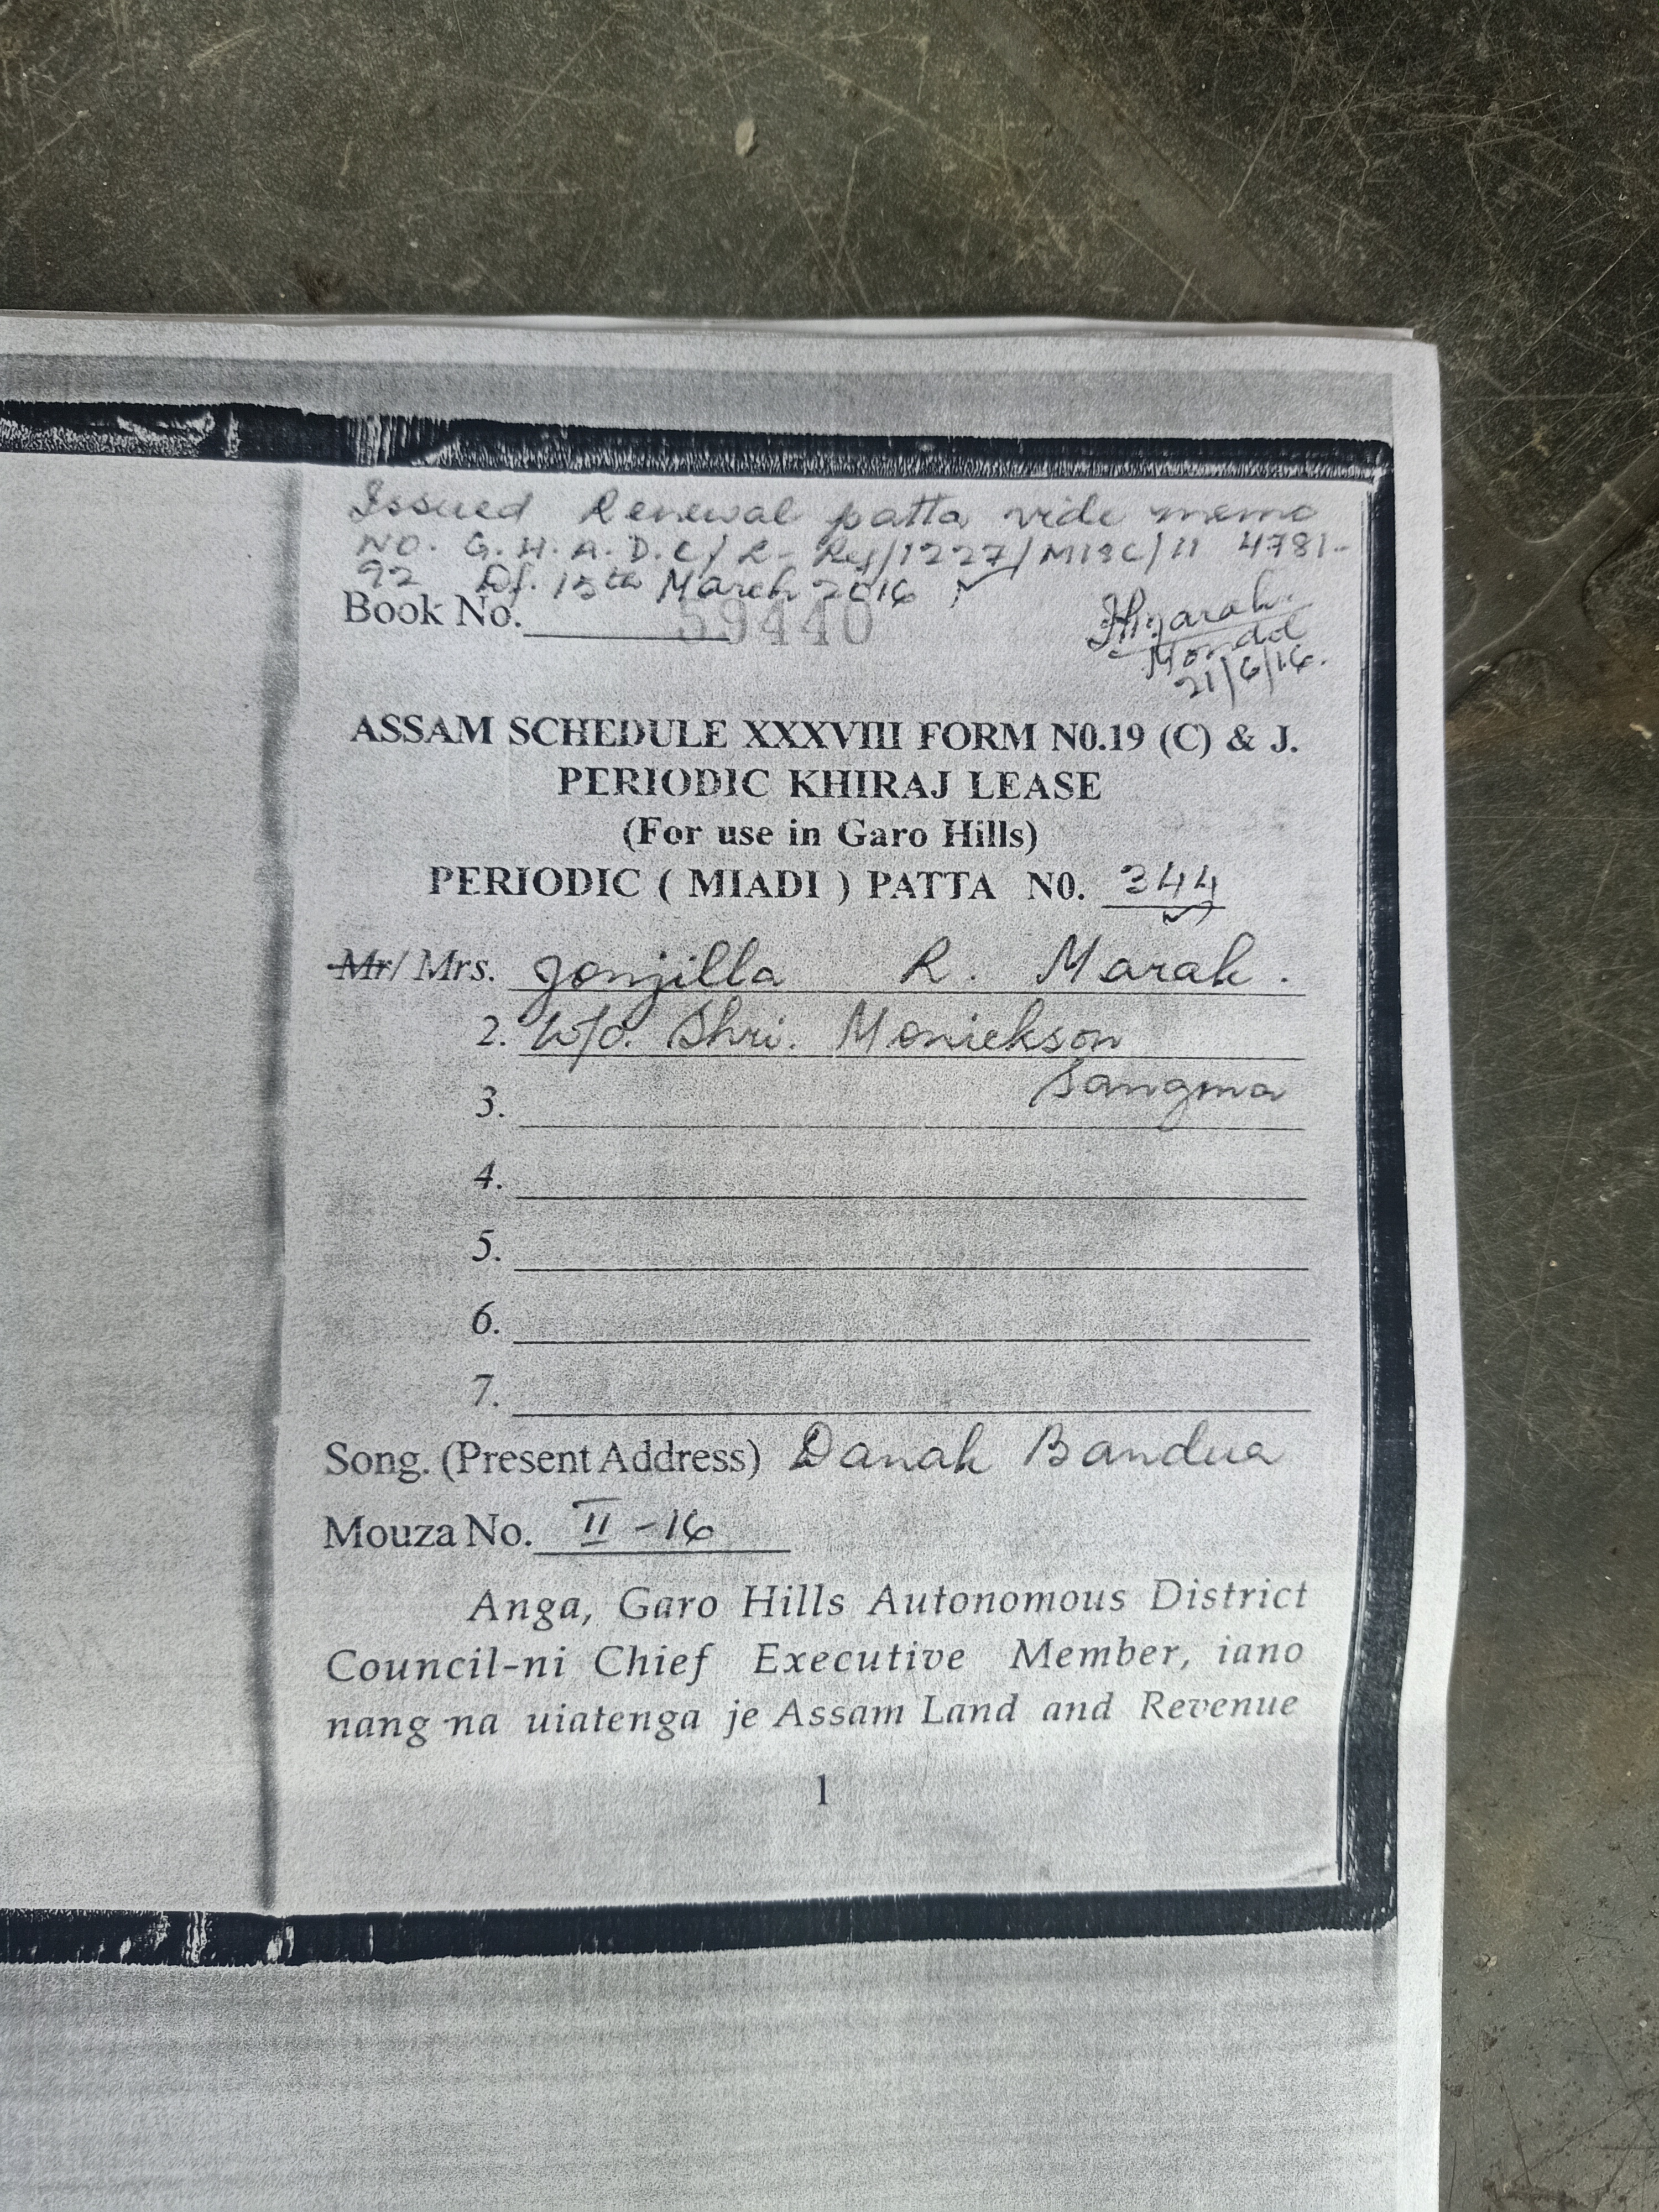 Issued Renewal patta vide memo
NO. G.H.A.D.C/ R- Reg/1227/MISC/11 4781-
92 Df. 15th March 2016
Book No. 59440
Mondd
21/6/16.
ASSAM SCHEDULE XXXVIII FORM N0.19 (C) & J.
PERIODIC KHIRAJ LEASE
(For use in Garo Hills)
PERIODIC ( MIADI ) PATTA N0. 344
Mr/ Mrs. Jonjilla R. Marak.
2. W/o. Shri. Moniekson
Sangma
3.
4.
5.
6.
7.
Song. (Present Address) Danak Bandua
Mouza No. II - 16
Anga, Garo Hills Autonomous District
Council-ni Chief Executive Member, iano
nang na uiatenga je Assam Land and Revenue
1